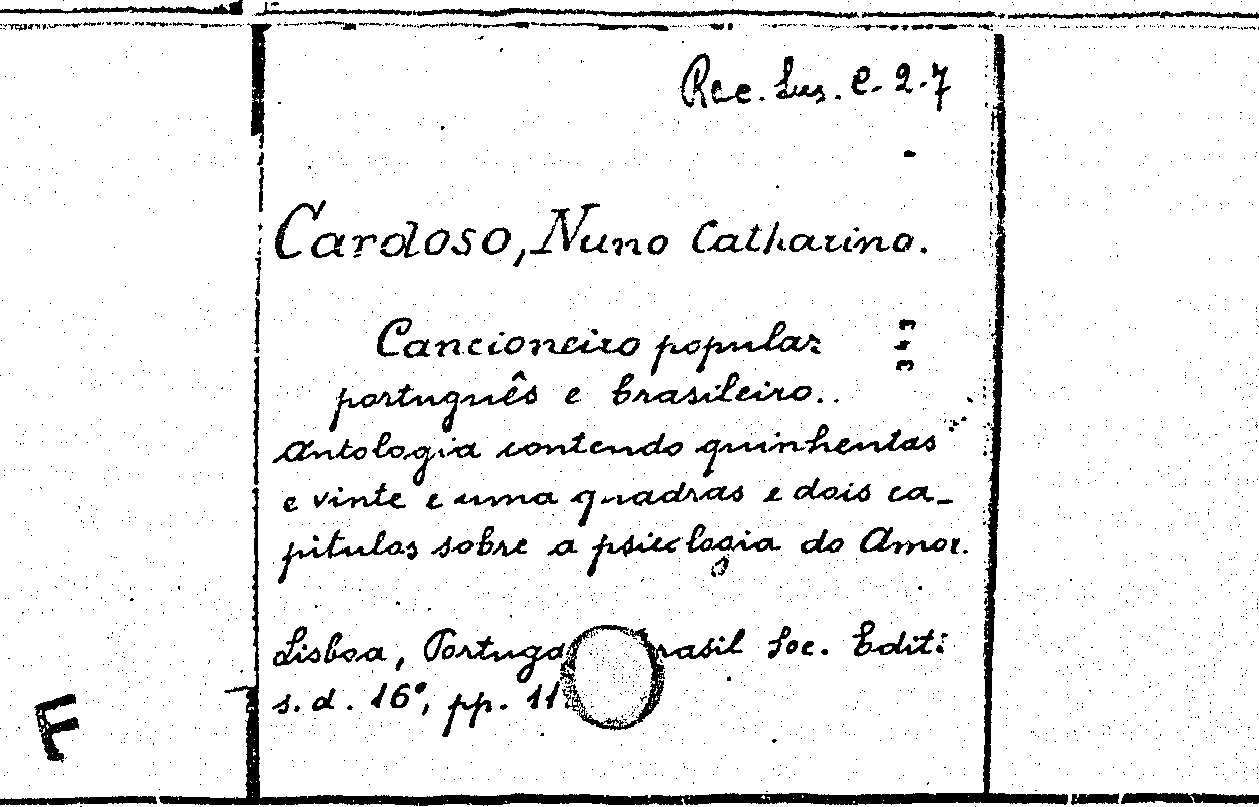 Rac. Lus. C. 2. 7
Cardoso, Nuno Catharino.
Cancioneiro popular
português e brasileiro..
Antologia contendo quinhentas
e vinte e uma quadras e dois ca-
pitulos sobre a psicologia do Amor.
Lisboa, Portuga rasil Soc. Edit:
s. d. 16°, pp. 11
F